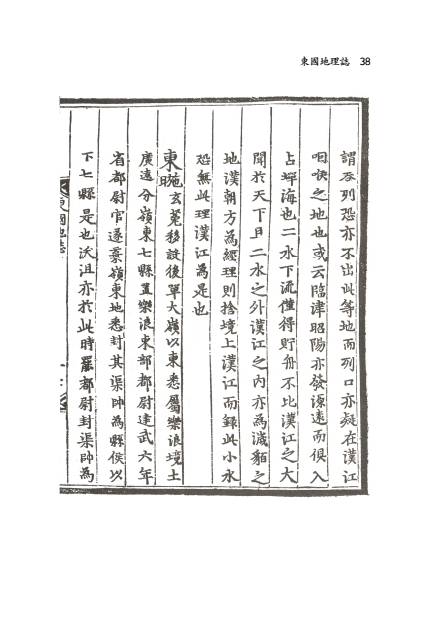 東國地理誌 38
謂吞列恐亦不出此等地而列口亦疑在漢江
咽喉之地也或云臨津昭陽亦發源遠而俱入
占蟬海也二水下流僅得貯舟不比漢江之大
聞於天下且二水之外漢江之內亦為濊貊之
地漢朝方為經理則捨境上漢江而錄此小水
恐無此理漢江為是也
東暆玄菟移設後單大嶺以東悉屬樂浪境土
廣遠分嶺東七縣置樂浪東部都尉建武六年
省都尉官遂棄嶺東地悉封其渠帥為縣侯以
下七縣是也沃沮亦於此時罷都尉封渠帥為
東國地誌